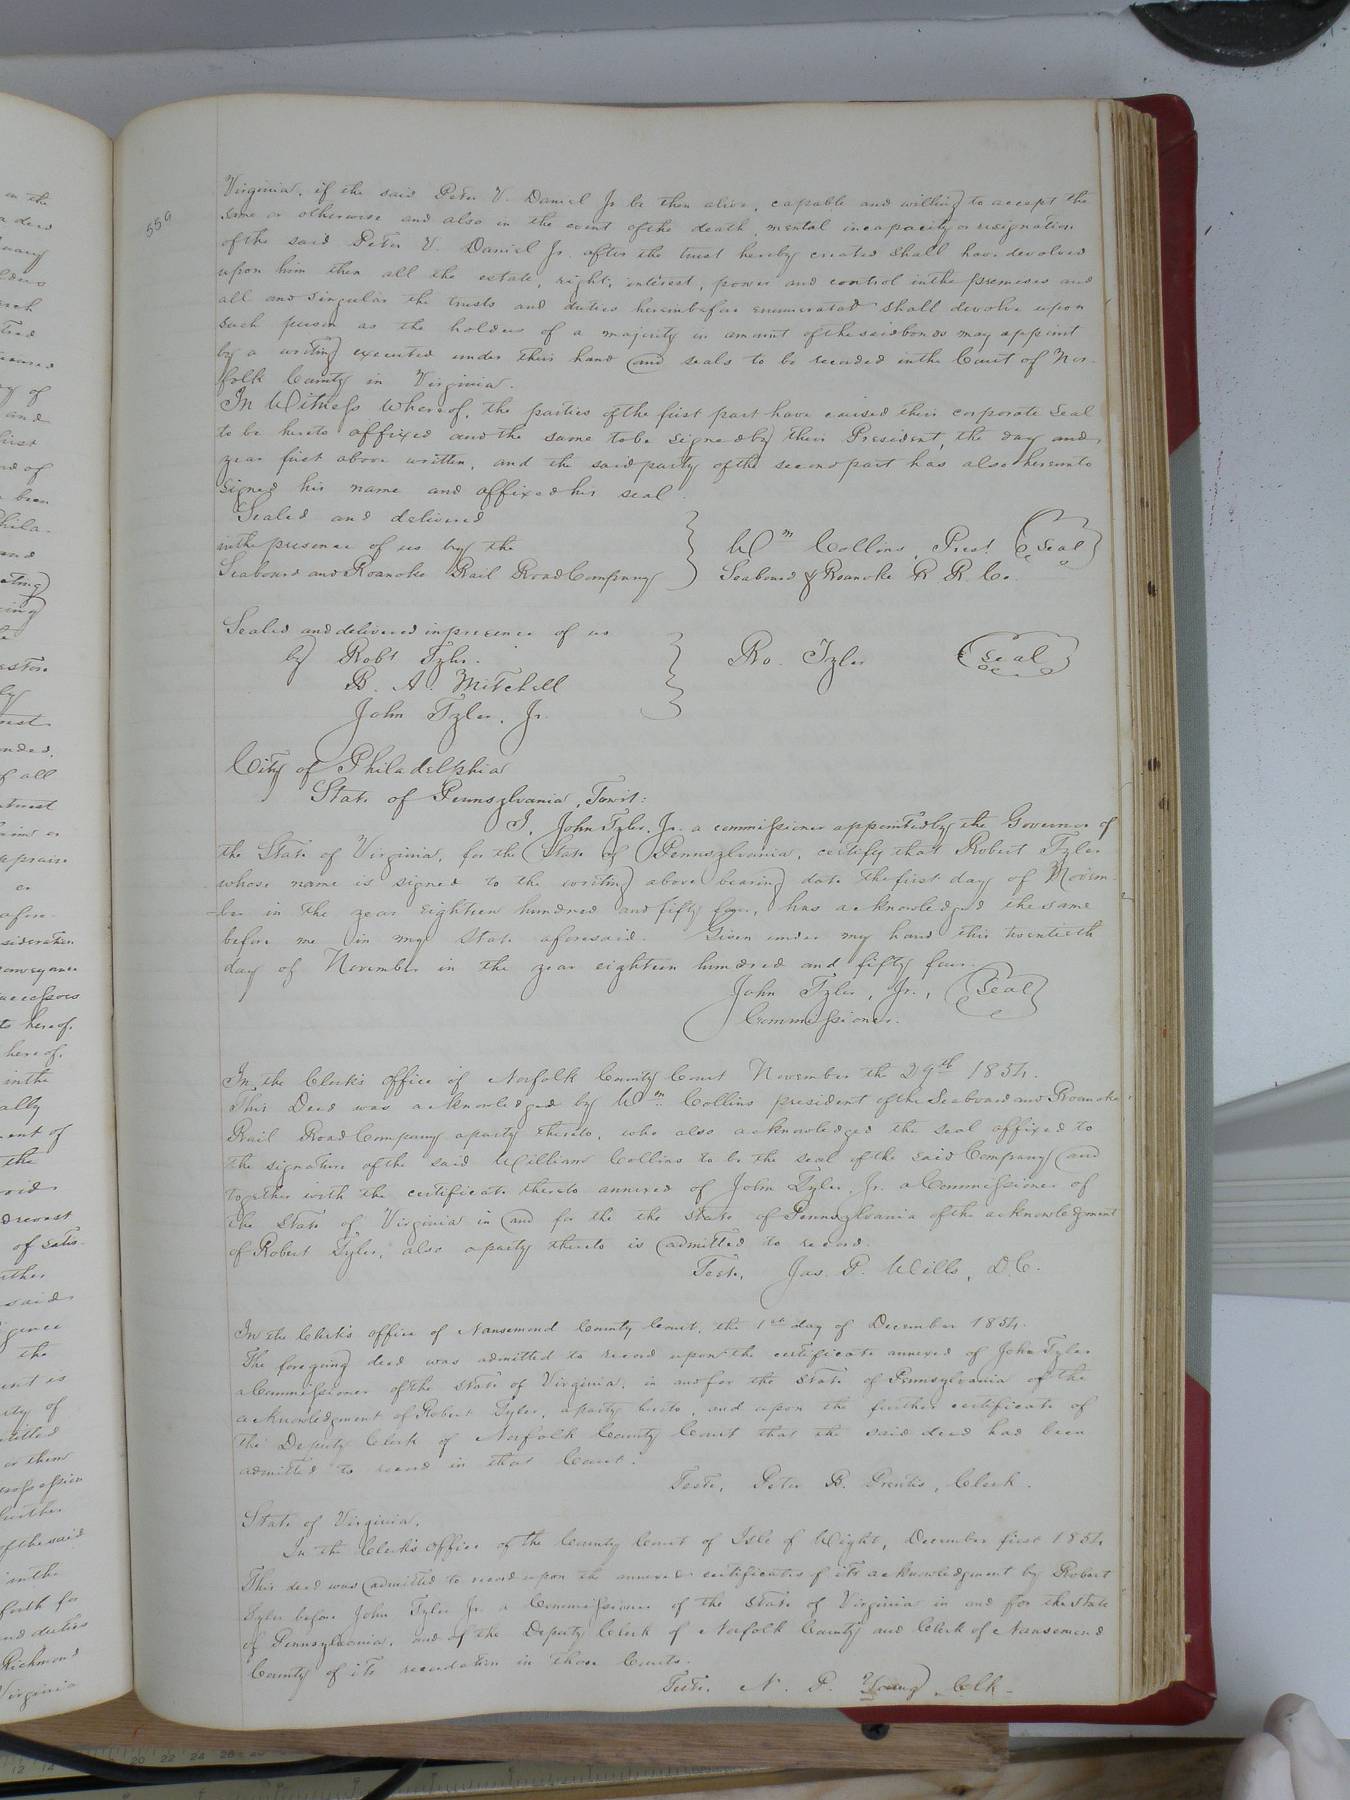 550
Virginia, if the said Peter V. Daniel Jr be then alive, capable and willing to accept the
same or otherwise and also in the event of the death, mental incapacity or resignation
of the said Peter V. Daniel Jr. after the trust hereby created shall have devolved
upon him then all the estate, right, interest, power and control in the premises and
all and singular the trusts and duties hereinbefore enumerated shall devolve upon
such person as the holders of a majority in amount of the said bonds may appoint
by a writing executed under their hand and seals to be recorded in the Court of Nor-
folk County in Virginia.
In Witness whereof, the parties of the first part have caused their corporate seal
to be hereto affixed and the same to be signed by their President, the day and
year first above written, and the said party of the second part has also hereunto
signed his name and affixed his seal.
Sealed and delivered
in the presence of us by the
Seaboard and Roanoke Rail Road Company
Wm Collins, Prest. (Seal)
Seaboard & Roanoke R R Co.
Sealed and delivered in presence of us
by Robt Tyler.
B. A. Mitchell
John Tyler, Jr.
Ro. Tyler (Seal)
City of Philadelphia
State of Pennsylvania, Towit:
I, John Tyler, Jr. a commissioner appointed by the Governor of
the State of Virginia, for the State of Pennsylvania, certify that Robert Tyler
whose name is signed to the writing above bearing date the first day of Novem-
ber in the year eighteen hundred and fifty four, has acknowledged the same
before me in my State aforesaid. Given under my hand this twentieth
day of November in the year eighteen hundred and fifty four.
John Tyler, Jr., (Seal)
Commissioner.
In the Clerk's office of Norfolk County Court November the 29th 1854.
This Deed was acknowledged by Wm Collins president of the Seaboard and Roanoke
Rail Road Company a party thereto, who also acknowledged the seal affixed to
the signature of the said William Collins to be the seal of the said Company and
together with the certificate thereto annexed of John Tyler, Jr. a Commissioner of
the State of Virginia in and for the the State of Pennsylvania of the acknowledgment
of Robert Tyler, also a party thereto is admitted to record.
Teste, Jas. P. Wills, D.C.
In the Clerk's office of Nansemond County Court, the 1st day of December 1854.
The foregoing deed was admitted to record upon the certificate annexed of John Tyler
a Commissioner of the State of Virginia, in and for the State of Pennsylvania of the
acknowledgment of Robert Tyler, a party hereto, and upon the further certificate of
the Deputy Clerk of Norfolk County Court that the said deed had been
admitted to record in that Court.
Teste, Peter B. Prentis, Clerk.
State of Virginia.
In the Clerk's Office of the County Court of Isle of Wight, December first 1854
This deed was admitted to record upon the annexed certificates of its acknowledgment by Robert
Tyler before John Tyler Jr. a Commissioner of the State of Virginia in and for the State
of Pennsylvania, and of the Deputy Clerk of Norfolk County and Clerk of Nansemond
County of its recordation in those Courts.
Teste. N. P. Young, Clk.